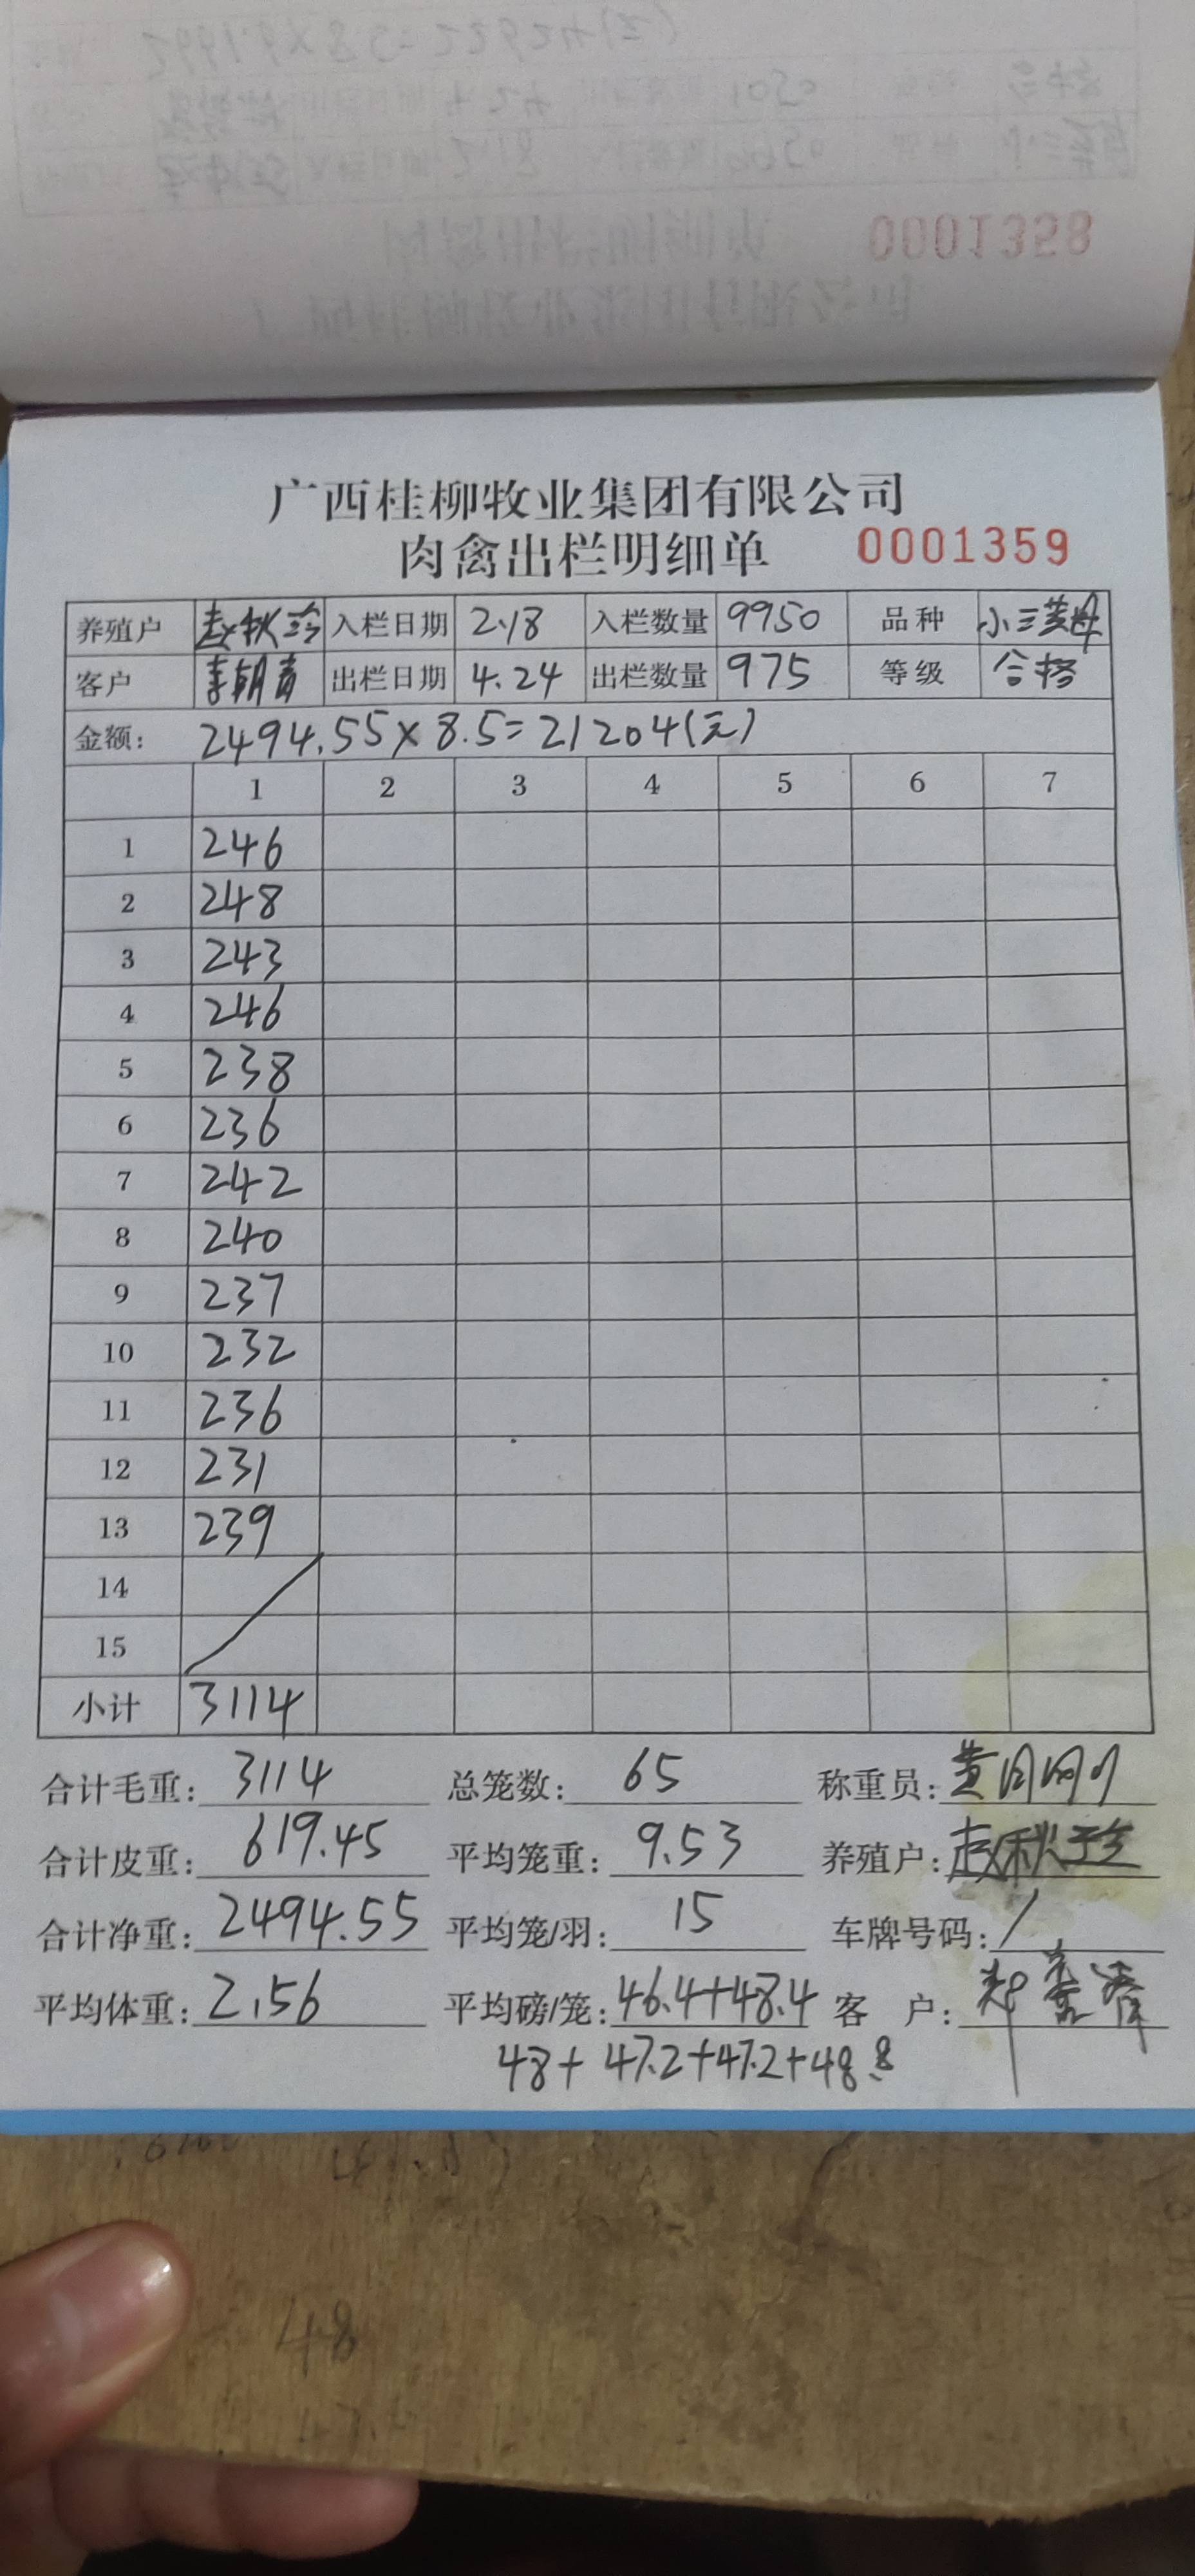 0001358
广西桂柳牧业集团有限公司
肉禽出栏明细单 0001359
养殖户 赵秋玲 入栏日期 2.18 入栏数量 9950 品种 小三黄母
客户 李朝青 出栏日期 4.24 出栏数量 975 等级 合格
金额: 2494.55×8.5=21204(元)
1 2 3 4 5 6 7
1 246
2 248
3 243
4 246
5 238
6 236
7 242
8 240
9 237
10 232
11 236
12 231
13 239
14
15
小计 3114
合计毛重: 3114 总笼数: 65 称重员:
合计皮重: 619.45 平均笼重: 9.53 养殖户: 赵秋玲
合计净重: 2494.55 平均笼/羽: 15 车牌号码: /
平均体重: 2.56 平均磅/笼: 46.4+48.4 客 户:
48+47.2+47.2+48.8
48